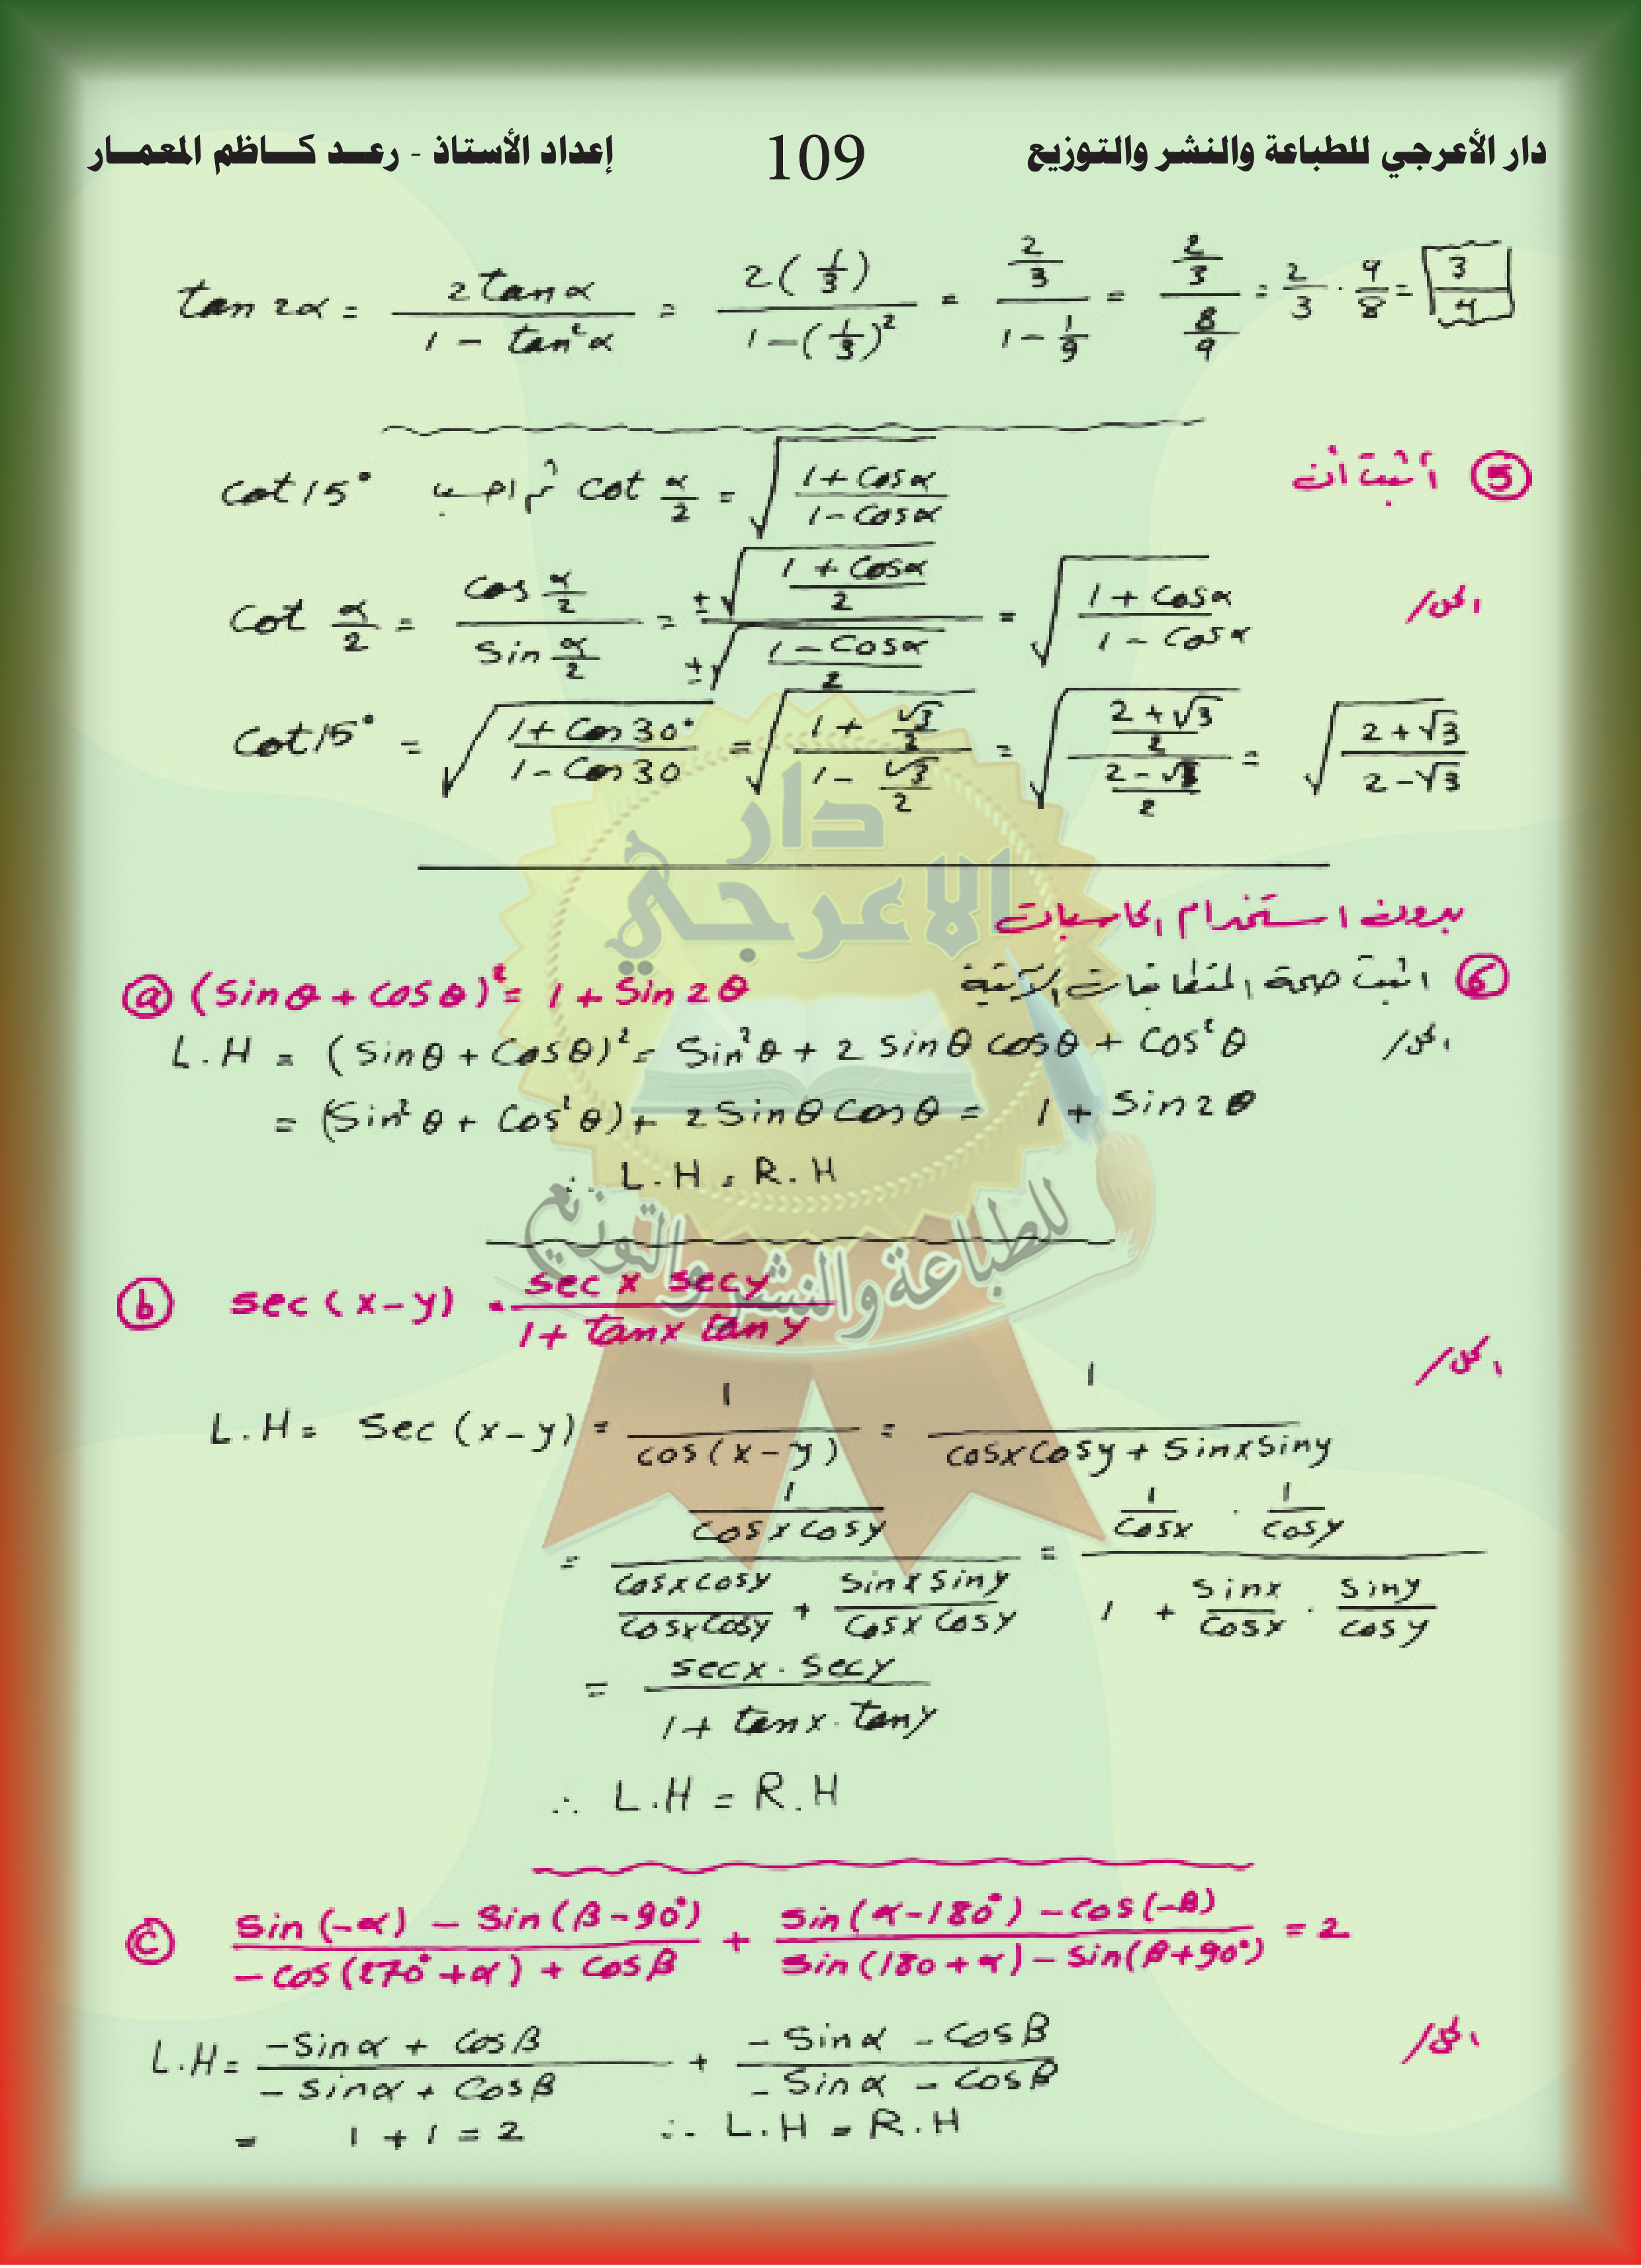 دار الأعرجي للطباعة والنشر والتوزيع 109 إعداد الأستاذ - رعـــد كـــاظم المعمـــار
tan 2α = 2 tan α / 1 - tan²α = 2(1/3) / 1-(1/3)² = 2/3 / 1 - 1/9 = 2/3 / 8/9 = 2/3 · 9/8 = 3/4
⑤ أثبت أن cot α/2 = √(1+cosα / 1-cosα) ثم احسب cot 15°
الحل/ cot α/2 = cos α/2 / sin α/2 = ±√(1+cosα / 2) / ±√(1-cosα / 2) = √(1+cosα / 1-cosα)
cot 15° = √(1+cos 30° / 1-cos 30) = √(1+ √3/2 / 1- √3/2) = √(2+√3/2 / 2-√3/2) = √(2+√3 / 2-√3)
بدون استخدام الحاسبات
⑥ اثبت صحة المتطابقات الآتية
ⓐ (sinθ + cosθ)² = 1 + sin 2θ
الحل/ L.H = (sinθ + cosθ)² = sin²θ + 2 sinθ cosθ + cos²θ
= (sin²θ + cos²θ) + 2 sinθ cosθ = 1 + sin 2θ
∴ L.H = R.H
ⓑ sec(x-y) = sec x sec y / 1 + tan x tan y
الحل/
L.H = sec(x-y) = 1 / cos(x-y) = 1 / cosx cosy + sinx siny
= 1/cosx cosy / cosx cosy/cosx cosy + sinx siny/cosx cosy = 1/cosx · 1/cosy / 1 + sinx/cosx · siny/cosy
= secx · secy / 1 + tanx · tany
∴ L.H = R.H
ⓒ sin(-α) - sin(β-90°) / -cos(270°+α) + cosβ + sin(α-180°) - cos(-β) / sin(180+α) - sin(β+90°) = 2
الحل/ L.H = -sinα + cosβ / -sinα + cosβ + -sinα - cosβ / -sinα - cosβ
= 1 + 1 = 2 ∴ L.H = R.H
دار
الاعرجي
للطباعة والنشر والتوزيع